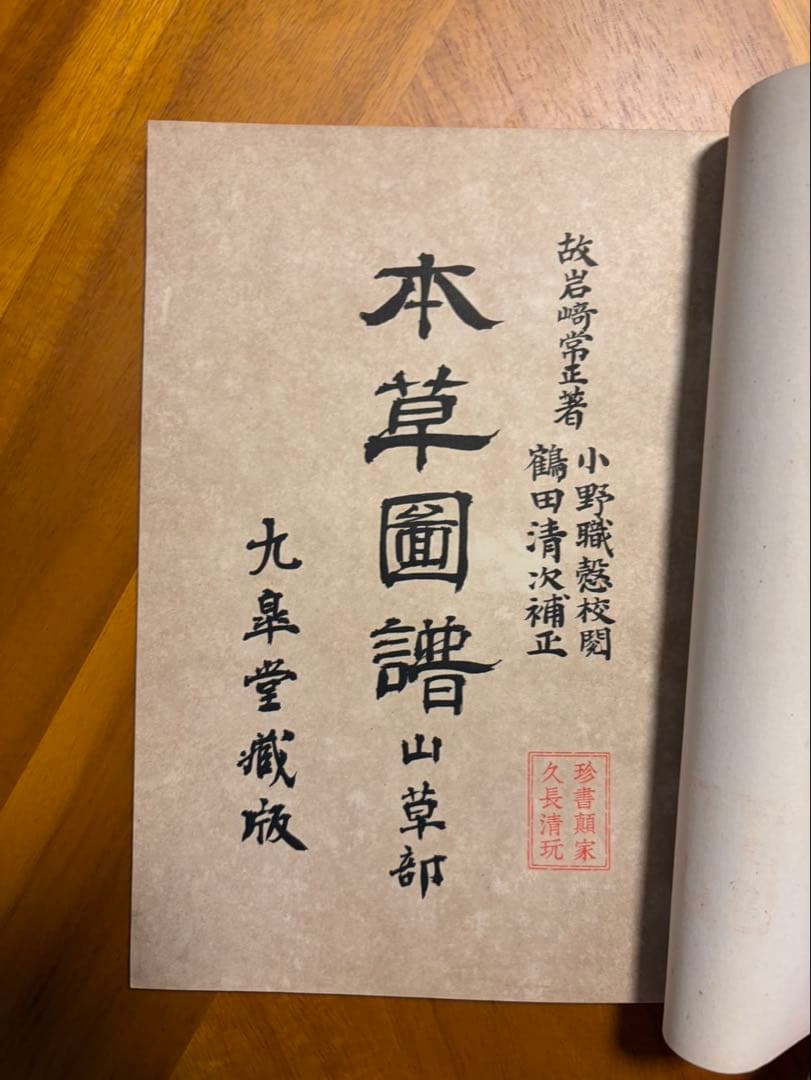 故岩﨑常正著
小野職愨校閱
鶴田清次補正
本草圖譜山草部
九皐堂藏版
珍書顛家
久長清玩